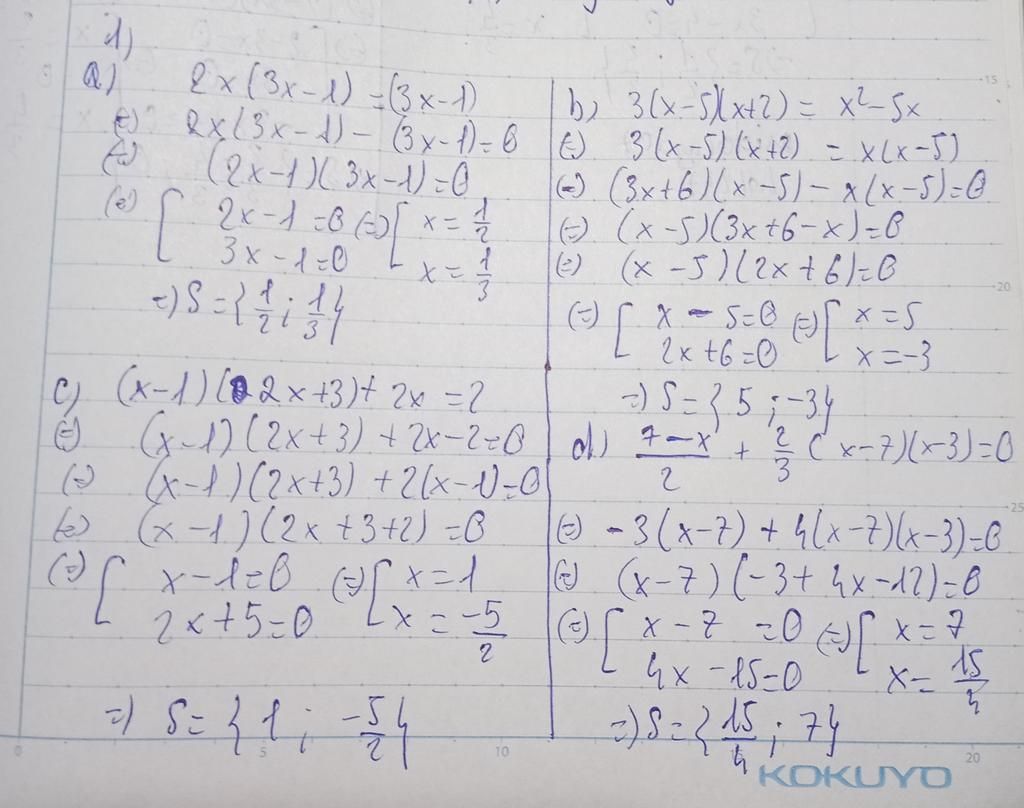 1)
a) 2x(3x-1) = (3x-1)
(=) 2x(3x-1) - (3x-1)=0
(=) (2x-1)(3x-1)=0
(=) [ 2x-1=0 (=) [ x = 1/2
3x-1=0 x = 1/3
=) S = { 1/2 ; 1/3 }
b) 3(x-5)(x+2) = x²-5x
(=) 3(x-5)(x+2) = x(x-5)
(=) (3x+6)(x-5) - x(x-5)=0
(=) (x-5)(3x+6-x)=0
(=) (x-5)(2x+6)=0
(=) [ x - 5=0 (=) [ x=5
2x+6=0 x=-3
=) S = { 5 ; -3 }
c) (x-1)(2x+3)+ 2x =2
(=) (x-1)(2x+3) + 2x-2=0
(=) (x-1)(2x+3) +2(x-1)=0
(=) (x-1)(2x+3+2) =0
(=) [ x-1=0 (=) [ x=1
2x+5=0 x = -5/2
=) S= { 1 ; -5/2 }
d) 7-x/2 + 2/3 (x-7)(x-3)=0
(=) -3(x-7) + 4(x-7)(x-3)=0
(=) (x-7)(-3+4x-12)=0
(=) [ x-7 =0 (=) [ x=7
4x-15=0 x= 15/4
=) S= { 15/4 ; 7 }
15
20
25
0 5 10 15 20
KOKUYO